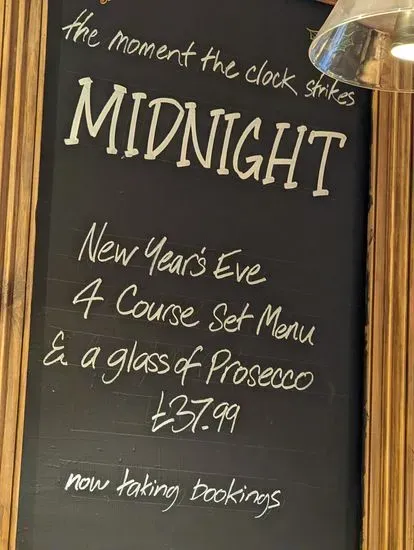 the moment the clock strikes
MIDNIGHT
New Year's Eve
4 Course Set Menu
& a glass of Prosecco
£37.99
now taking bookings